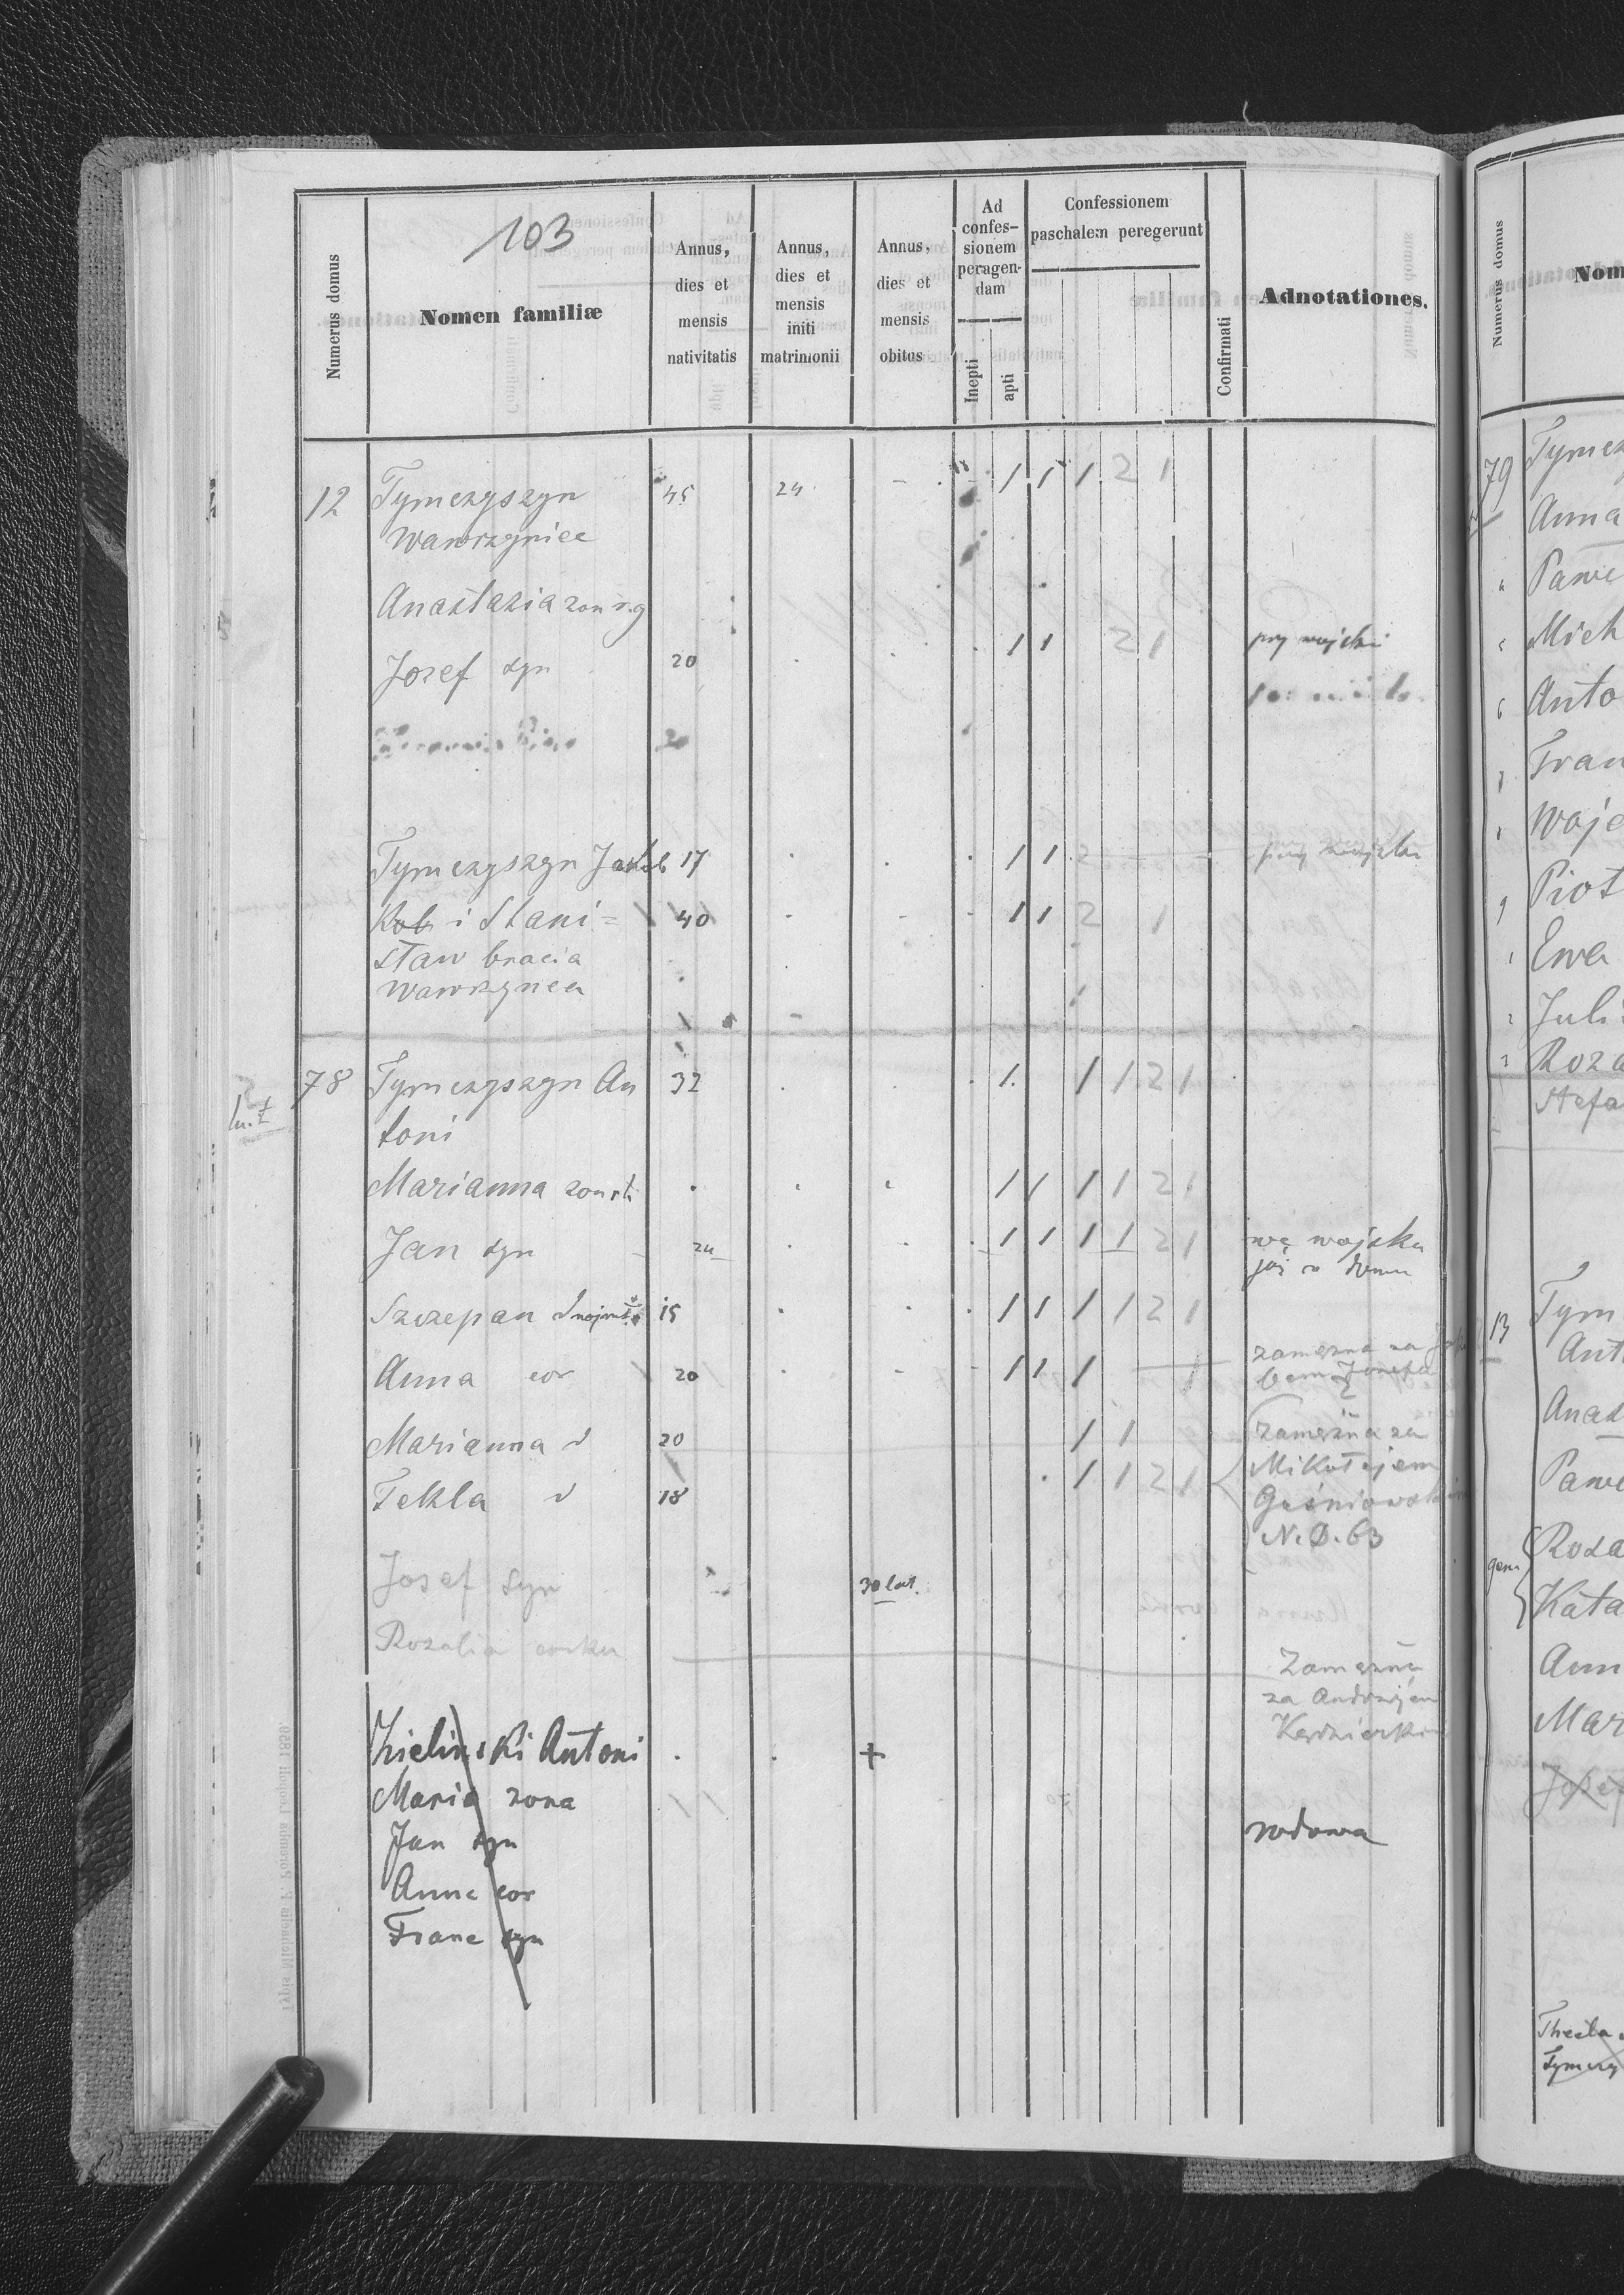 103
Numerus domus
Nomen familiæ
Annus, dies et mensis nativitatis
Annus, dies et mensis initi matrimonii
Annus, dies et mensis obitus
Ad confes-sionem peragen-dam
Inepti
apti
Confessionem paschalem peregerunt
Confirmati
Adnotationes.
12 Tymczyszyn 45 24 - 1 1 1 2 1
Wawrzyniec
Anastazia
Josef syn 20 1 1 2 1 przy wojsku
Tymczyszyn Jakub 17 1 1 2 przy wojsku
Kob i Stani= 40 1 1 2 1
sław bracia
Wawrzynca
78 Tymczyszyn An 32 1 1 1 2 1
toni
Marianna 1 1 1 1 2 1
Jan syn 24 1 1 1 1 2 1 wę wojsku
już w domu
Szczepan 15 1 1 1 1 2 1
Anna cor 20 1 1 1 1 zamęzna za
bem Josefa
Marianna d 20 1 1 zamęžna za
Tekla d 18 1 1 2 1 Mikołajem
Guśniowskim
N. D. 63
Josef syn 30 lat.
Rozalia corka Zamęžna
za Andrzejem
Kędzierkim
Zielinski Antoni +
Maria zona
Jan syn wdowa
Anna cor
Franc syn
Typis Michaelis F. Poremba Leopoli 1859.
Numerus domus
Nom
79 Tymcz
Anna
Pawe
Mich
Anto
Fran
Woje
Piot
Ewa
Juli
Roza
Stefa
13 Tym
Ant
Anas
Pawe
gem
Roza
Kata
Ann
Mar
Josef
Thecla
Tymczy